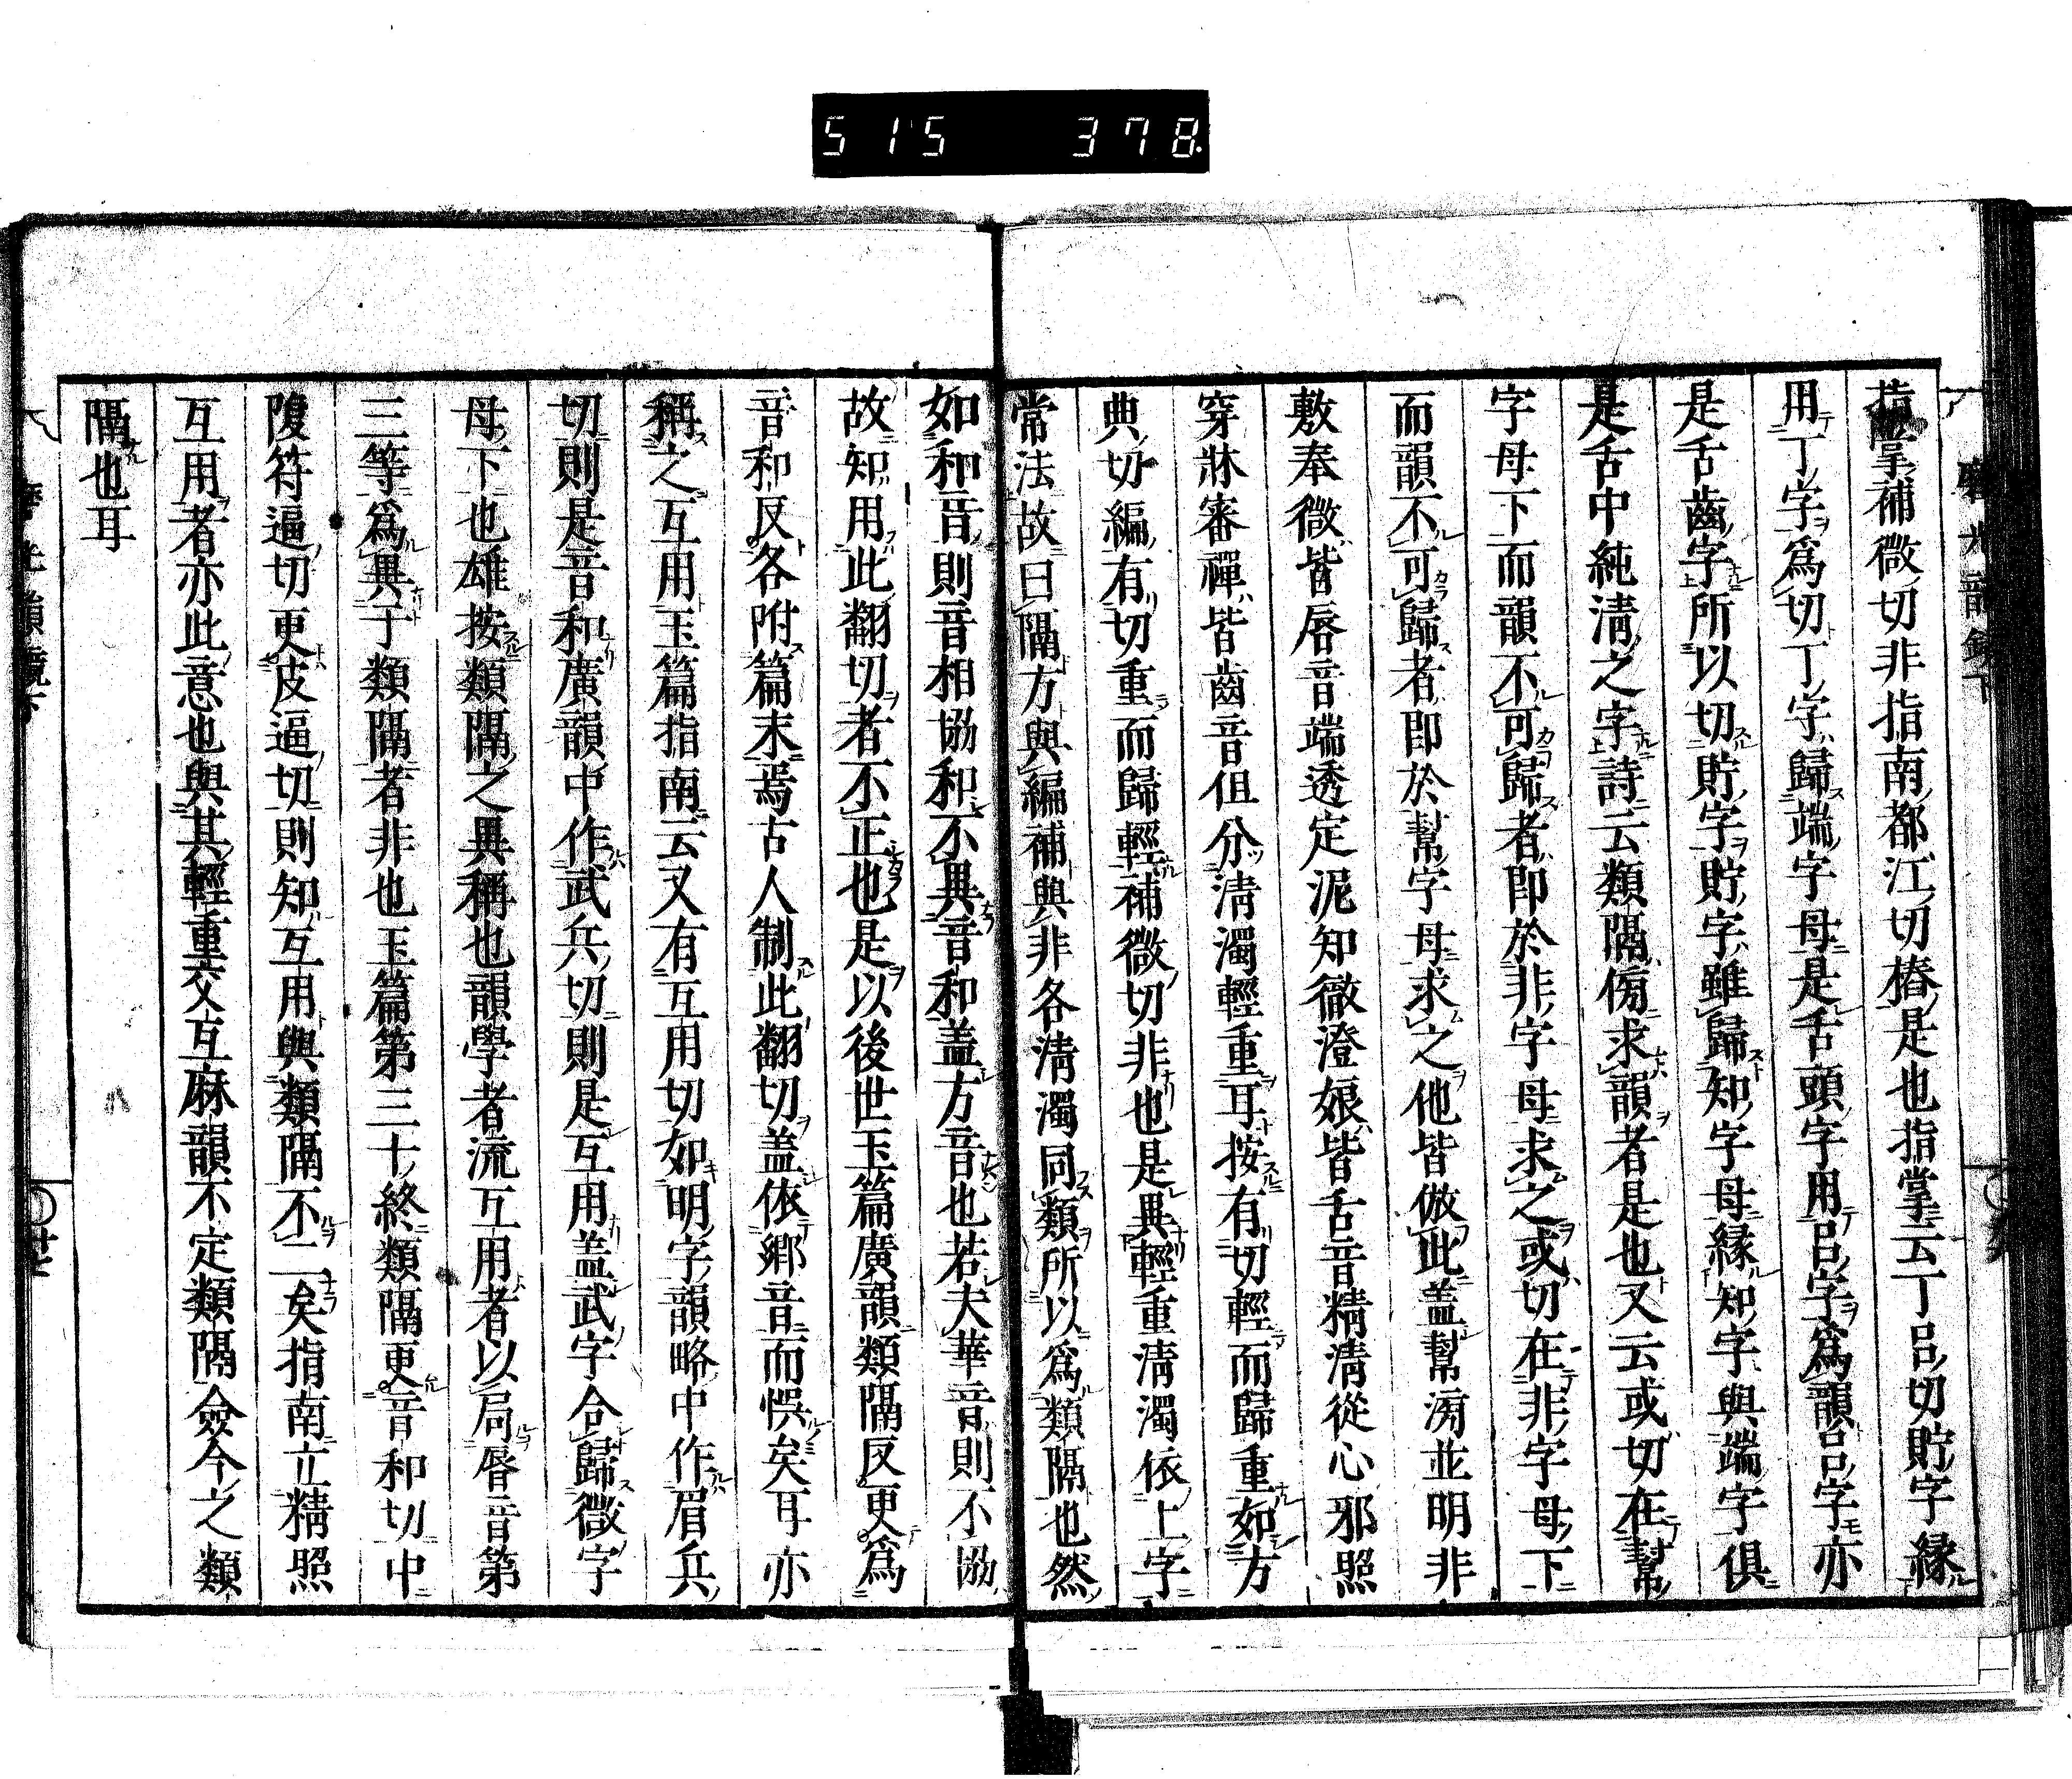 515 378
指掌補微切非指南都江切樁是也指掌云丁呂切貯字緣
用丁字爲切丁字歸端字母是舌頭字用呂字爲韻呂字亦
是舌齒字所以切貯字貯字雖歸知字母緣知字與端字俱
是舌中純淸之字詩云類隔傍求韻者是也又云或切在幫
字母下而韻不可歸者即於非字母求之或切在非字母下
而韻不可歸者即於幫字母求之他皆倣此盖幫滂並明非
敷奉微皆唇音端透定泥知徹澄娘皆舌音精淸從心邪照
穿牀審禪皆齒音但分淸濁輕重耳按有切輕而歸重如方
典切編有切重而歸輕補微切非也是異輕重淸濁依上字
常法故曰隔方與編補與非各淸濁同類所以爲類隔也然
如和音則音相協和不異音和盖方音也若夫華音則不協
故知用此翻切者不正也是以後世玉篇廣韻類隔反更爲
音和反各附篇末焉古人制此翻切盖依鄉音而悞矣耳亦
稱之互用玉篇指南云又有互用切如明字韻略中作眉兵
切則是音和廣韻中作武兵切則是互用盖武字合歸微字
母下也雄按類隔之異稱也韻學者流互用者以局唇音第
三等爲異于類隔者非也玉篇第三十終類隔更音和切中
䧗符逼切更皮逼切則知互用與類隔不二矣指南立精照
互用者亦此意也與其輕重交互麻韻不定類隔僉今之類
隔也耳